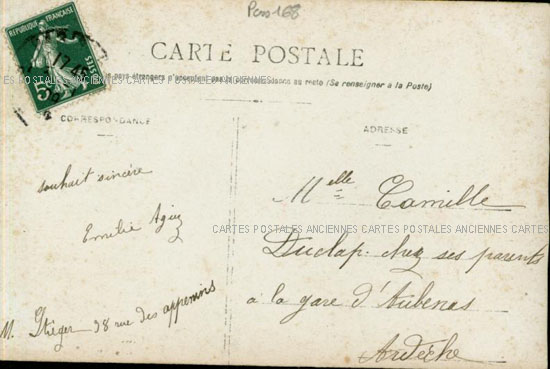 Pers 168
REPUBLIQUE FRANÇAISE
POSTES
5
CARTE POSTALE
pays étrangers n'acceptent pas la correspondance au recto (Se renseigner à la Poste)
CARTES POSTALES ANCIENNES CARTES POSTALES ANCIENNES
CORRESPONDANCE
ADRESSE
souhait sincère
Emilie
Melle Camille
CARTES POSTALES ANCIENNES CARTES POSTALES ANCIENNES
chez ses parents
à la gare d'Aubenas
Ardèche
M. Stéger 98 rue des